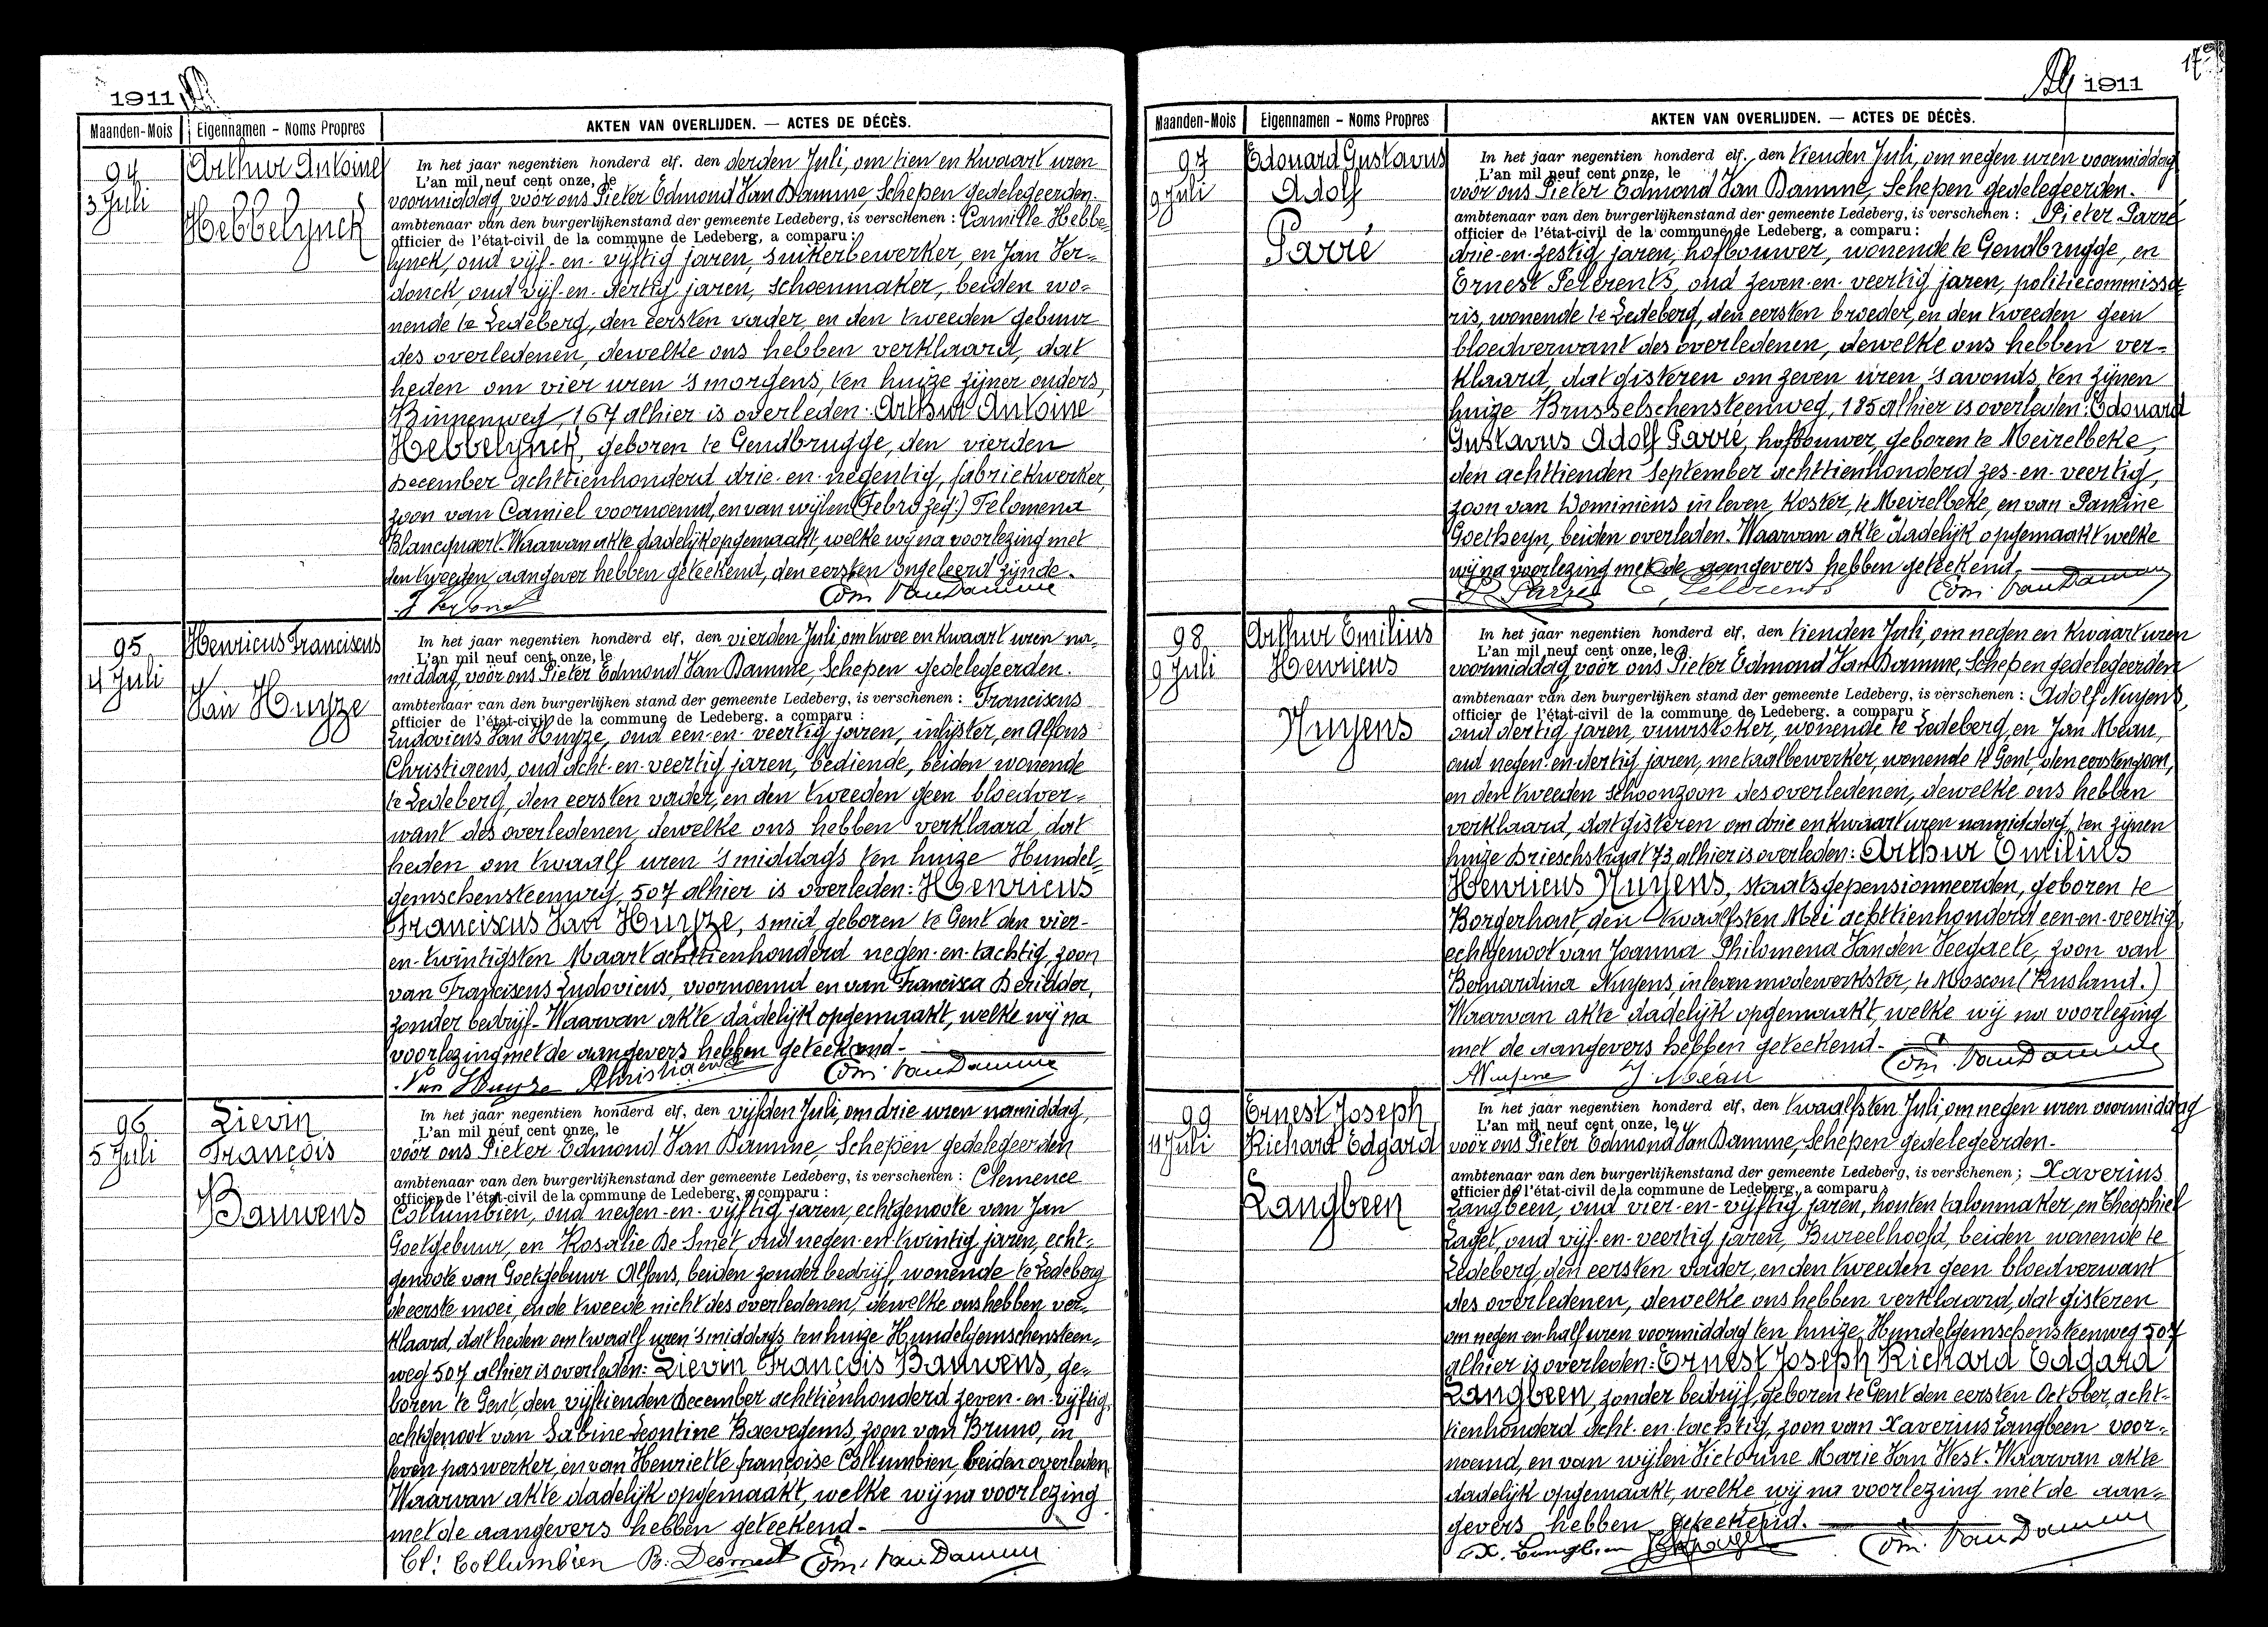 1911
Maanden-Mois
Eigennamen - Noms Propres
AKTEN VAN OVERLIJDEN. — ACTES DE DÉCÈS.
94
3 Juli
Arthur Antoine
Hebbelynck
In het jaar negentien honderd elf. den derden Juli, om tien en kwaart uren
L'an mil neuf cent onze, le
voormiddag, voor ons Pieter Edmond Van Damme, Schepen gedelegeerden.
ambtenaar van den burgerlijkenstand der gemeente Ledeberg, is verschenen : Camille Hebbe-
officier de l'état-civil de la commune de Ledeberg, a comparu :
lynck, oud vijf-en-vijftig jaren, suikerbewerker, en Jan Ver-
donck, oud vijf-en-dertig jaren, schoenmaker, beiden wo-
nende te Ledeberg, den eersten vader, en den tweeden gebuur
des overledenen, dewelke ons hebben verklaard, dat
heden om vier uren 's morgens, ten huize zijner ouders,
Binnenweg, 167 alhier is overleden: Arthur Antoine
Hebbelynck, geboren te Gendbrugge, den vierden
December achttienhonderd drie-en-negentig, fabriekwerker,
zoon van Camiel voornoemd, en van wijlen (Febro zeg:) Felomena
Blancquaert. Waarvan akte dadelijk opgemaakt, welke wij na voorlezing met
den tweeden aangever hebben geteekend, den eersten ongeleerd zijnde.
Edm. Van Damme
95
4 Juli
Henricus Franciscus
Van Huyze
In het jaar negentien honderd elf, den vierden Juli, om twee en kwaart uren na-
L'an mil neuf cent onze, le
middag, voor ons Pieter Edmond Van Damme, Schepen gedelegeerden.
ambtenaar van den burgerlijken stand der gemeente Ledeberg, is verschenen : Franciscus
officier de l'état-civil de la commune de Ledeberg. a comparu :
Ludovicus Van Huyze, oud een-en-veertig jaren, inlijster, en Alfons
Christiaens, oud acht-en-veertig jaren, bediende, beiden wonende
te Ledeberg, den eersten vader, en den tweeden geen bloedver-
want des overledenen, dewelke ons hebben verklaard, dat
heden om twaalf uren 's middags ten huize Hundel-
gemschensteenweg, 507 alhier is overleden: Henricus
Franciscus Van Huyze, smid, geboren te Gent den vier-
en-twintigsten Maart achttienhonderd negen-en-tachtig, zoon
van Franciscus Ludovicus, voornoemd en van Francisca Deridder,
zonder bedrijf. Waarvan akte dadelijk opgemaakt, welke wij na
voorlezing met de aangevers hebben geteekend.
Van Huyze AChristiaens Edm. Van Damme
96
5 Juli
Lievin
François
Bauwens
In het jaar negentien honderd elf, den vijfden Juli, om drie uren namiddag,
L'an mil neuf cent onze, le
voor ons Pieter Edmond Van Damme, Schepen gedelegeerden
ambtenaar van den burgerlijkenstand der gemeente Ledeberg, is verschenen : Clemence
officier de l'état-civil de la commune de Ledeberg, a comparu :
Collumbien, oud negen-en-vijftig jaren, echtgenoote van Jan
Goetgebuur, en Rosalie De Smet, oud negen-en-twintig jaren, echt-
genoote van Goetgebuur Alfons, beiden zonder bedrijf, wonende te Ledeberg
de eerste moei, en de tweede nicht des overledenen, dewelke ons hebben ver-
klaard, dat heden om twaalf uren 's middags ten huize Hundelgemschensteen-
weg 507 alhier is overleden: Lievin François Bauwens, ge-
boren te Gent, den vijftienden December achttienhonderd zeven-en-vijftig,
echtgenoot van Sabine Leontine Baevegems, zoon van Bruno, in
leven paswerker, en van Henriette françoise Collumbien, beiden overleden.
Waarvan akte dadelijk opgemaakt, welke wij na voorlezing
met de aangevers hebben geteekend.
Cl: Collumbien R. Desmet Edm. Van Damme
1911
17
Maanden-Mois
Eigennamen - Noms Propres
AKTEN VAN OVERLIJDEN. — ACTES DE DÉCÈS.
97
9 Juli
Edouard Gustavus
Adolf
Parré
In het jaar negentien honderd elf, den tienden Juli, om negen uren voormiddag
L'an mil neuf cent onze, le
voor ons Pieter Edmond Van Damme, Schepen gedelegeerden.
ambtenaar van den burgerlijkenstand der gemeente Ledeberg, is verschenen : Pieter Parré
officier de l'état-civil de la commune de Ledeberg, a comparu :
drie-en-zestig jaren, hofbouwer, wonende te Gendbrugge, en
Ernest Pelerents, oud zeven-en-veertig jaren, politiecommissa-
ris, wonende te Ledeberg, den eersten broeder, en den tweeden geen
bloedverwant des overledenen, dewelke ons hebben ver-
klaard, dat gisteren om zeven uren 's avonds, ten zijnen
huize Brusselschensteenweg, 185 alhier is overleden: Edouard
Gustavus Adolf Parré, hofbouwer, geboren te Meirelbeke,
den achttienden September achttienhonderd zes-en-veertig,
zoon van Dominicus in leven koster, te Meirelbeke, en van Pauline
Goetheyn, beiden overleden. Waarvan akte dadelijk opgemaakt welke
wij na voorlezing met de aangevers hebben geteekend.
P. Parré E. Pelerents Edm. Van Damme
98
9 Juli
Arthur Emilius
Henricus
Nuyens
In het jaar negentien honderd elf, den tienden Juli, om negen en kwaart uren
L'an mil neuf cent onze, le
voormiddag, voor ons Pieter Edmond Van Damme, Schepen gedelegeerden
ambtenaar van den burgerlijken stand der gemeente Ledeberg, is verschenen : Adolf Nuyens,
officier de l'état-civil de la commune de Ledeberg. a comparu :
oud dertig jaren, vuurstoker, wonende te Ledeberg, en Jan Meau,
oud negen-en-dertig jaren, metaalbewerker, wonende te Gent, den eersten zoon,
en den tweeden schoonzoon des overledenen, dewelke ons hebben
verklaard, dat gisteren om drie en kwaart uren namiddag, ten zijnen
huize Drieschstraat 73, alhier is overleden: Arthur Emilius
Henricus Nuyens, staatsgepensionneerden, geboren te
Borgerhout, den twaalfsten Mei achttienhonderd een-en-veertig,
echtgenoot van Joanna Philomena Vanden Veegaete, zoon van
Bernardina Nuyens, in leven modewerkster, te Moscou (Rusland.)
Waarvan akte dadelijk opgemaakt, welke wij na voorlezing
met de aangevers hebben geteekend.
ANuyens J. Meau Edm. Van Damme
99
11 Juli
Ernest Joseph
Richard Edgard
Langbeen
In het jaar negentien honderd elf, den twaalfsten Juli, om negen uren voormiddag
L'an mil neuf cent onze, le
voor ons Pieter Edmond Van Damme, Schepen gedelegeerden.
ambtenaar van den burgerlijkenstand der gemeente Ledeberg, is verschenen ; Xaverius
officier de l'état-civil de la commune de Ledeberg, a comparu
Langbeen, oud vier-en-vijftig jaren, houten talonmaker, en Theophiel
oud vijf-en-veertig jaren, Bureelhoofd, beiden wonende te
Ledeberg, den eersten vader, en den tweeden geen bloedverwant
des overledenen, dewelke ons hebben verklaard, dat gisteren
om negen en half uren voormiddag ten huize, Hundelgemschensteenweg 507
alhier is overleden: Ernest Joseph Richard Edgard
Langbeen, zonder bedrijf, geboren te Gent den eersten October, acht-
tienhonderd acht-en-tachtig, zoon van Xaverius Langbeen voor-
noemd, en van wijlen Victorine Marie Van West. Waarvan akte
dadelijk opgemaakt, welke wij na voorlezing met de aan-
gevers hebben geteekend.
X. Langbeen Edm. Van Damme